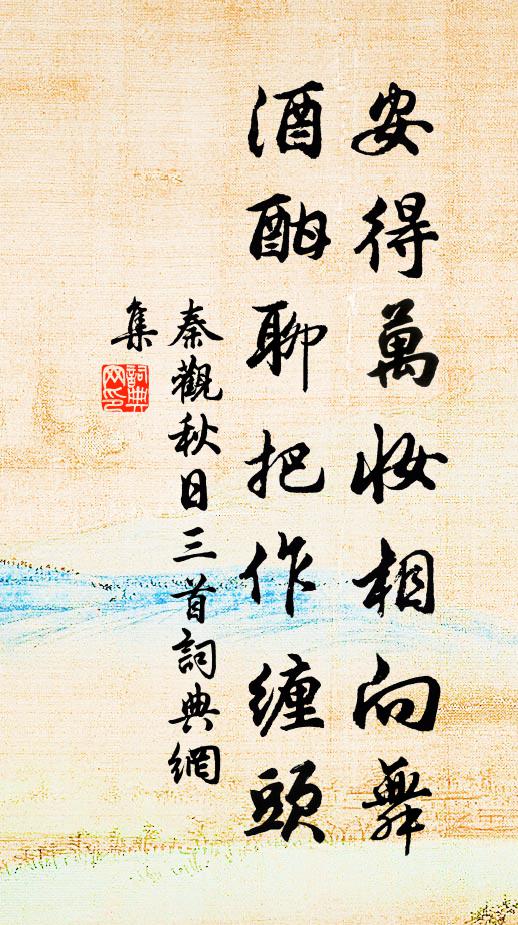 安得萬妝相向舞
酒酣聊把作缠頭
秦觀秋日三首詞典網
集
詞典
网印